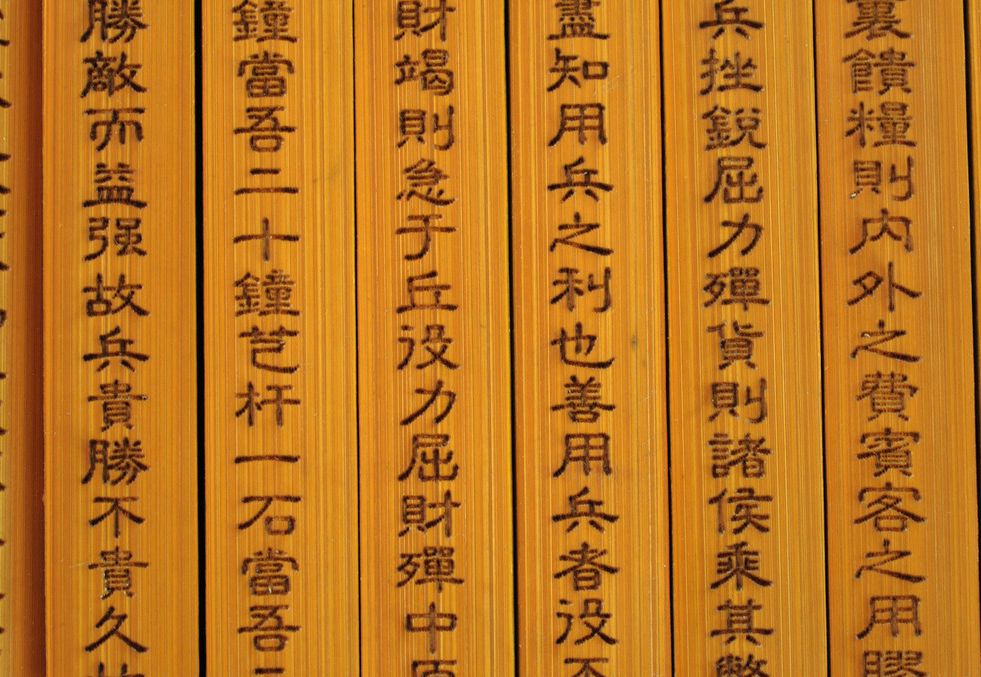 裏饋糧則内外之費賓客之用膠
兵挫銳屈力殫貨則諸侯乘其
盡知用兵之利也善用兵者役不
財竭則急于丘役力屈財殫中原
鐘當吾二十鐘芑杆一石當吾二
勝敵而益强故兵貴勝不貴久故